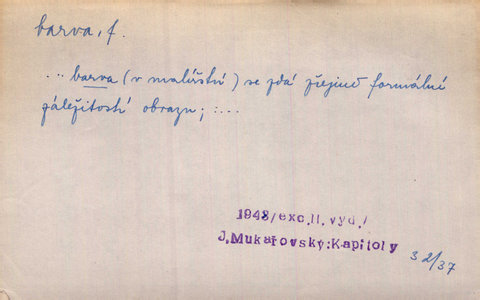 barva, f.
... barva (v malířství) se zdá zřejmě formální
záležitostí obrazu; :...
1948/exc.II.vyd./
J.Mukařovský:Kapitoly
32/37